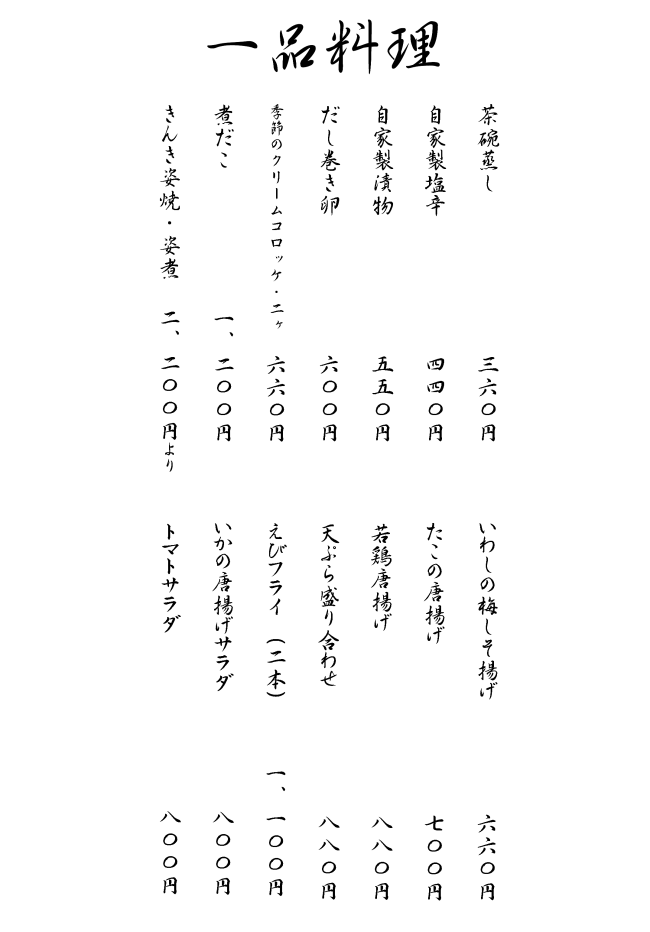 一品料理
茶碗蒸し 三六〇円
自家製塩辛 四四〇円
自家製漬物 五五〇円
だし巻き卵 六〇〇円
季節のクリームコロッケ・二ヶ 六六〇円
煮だこ 一、二〇〇円
きんき姿焼・姿煮 二、二〇〇円より
いわしの梅しそ揚げ 六六〇円
たこの唐揚げ 七〇〇円
若鶏唐揚げ 八八〇円
天ぷら盛り合わせ 八八〇円
えびフライ (二本) 一、一〇〇円
いかの唐揚げサラダ 八〇〇円
トマトサラダ 八〇〇円